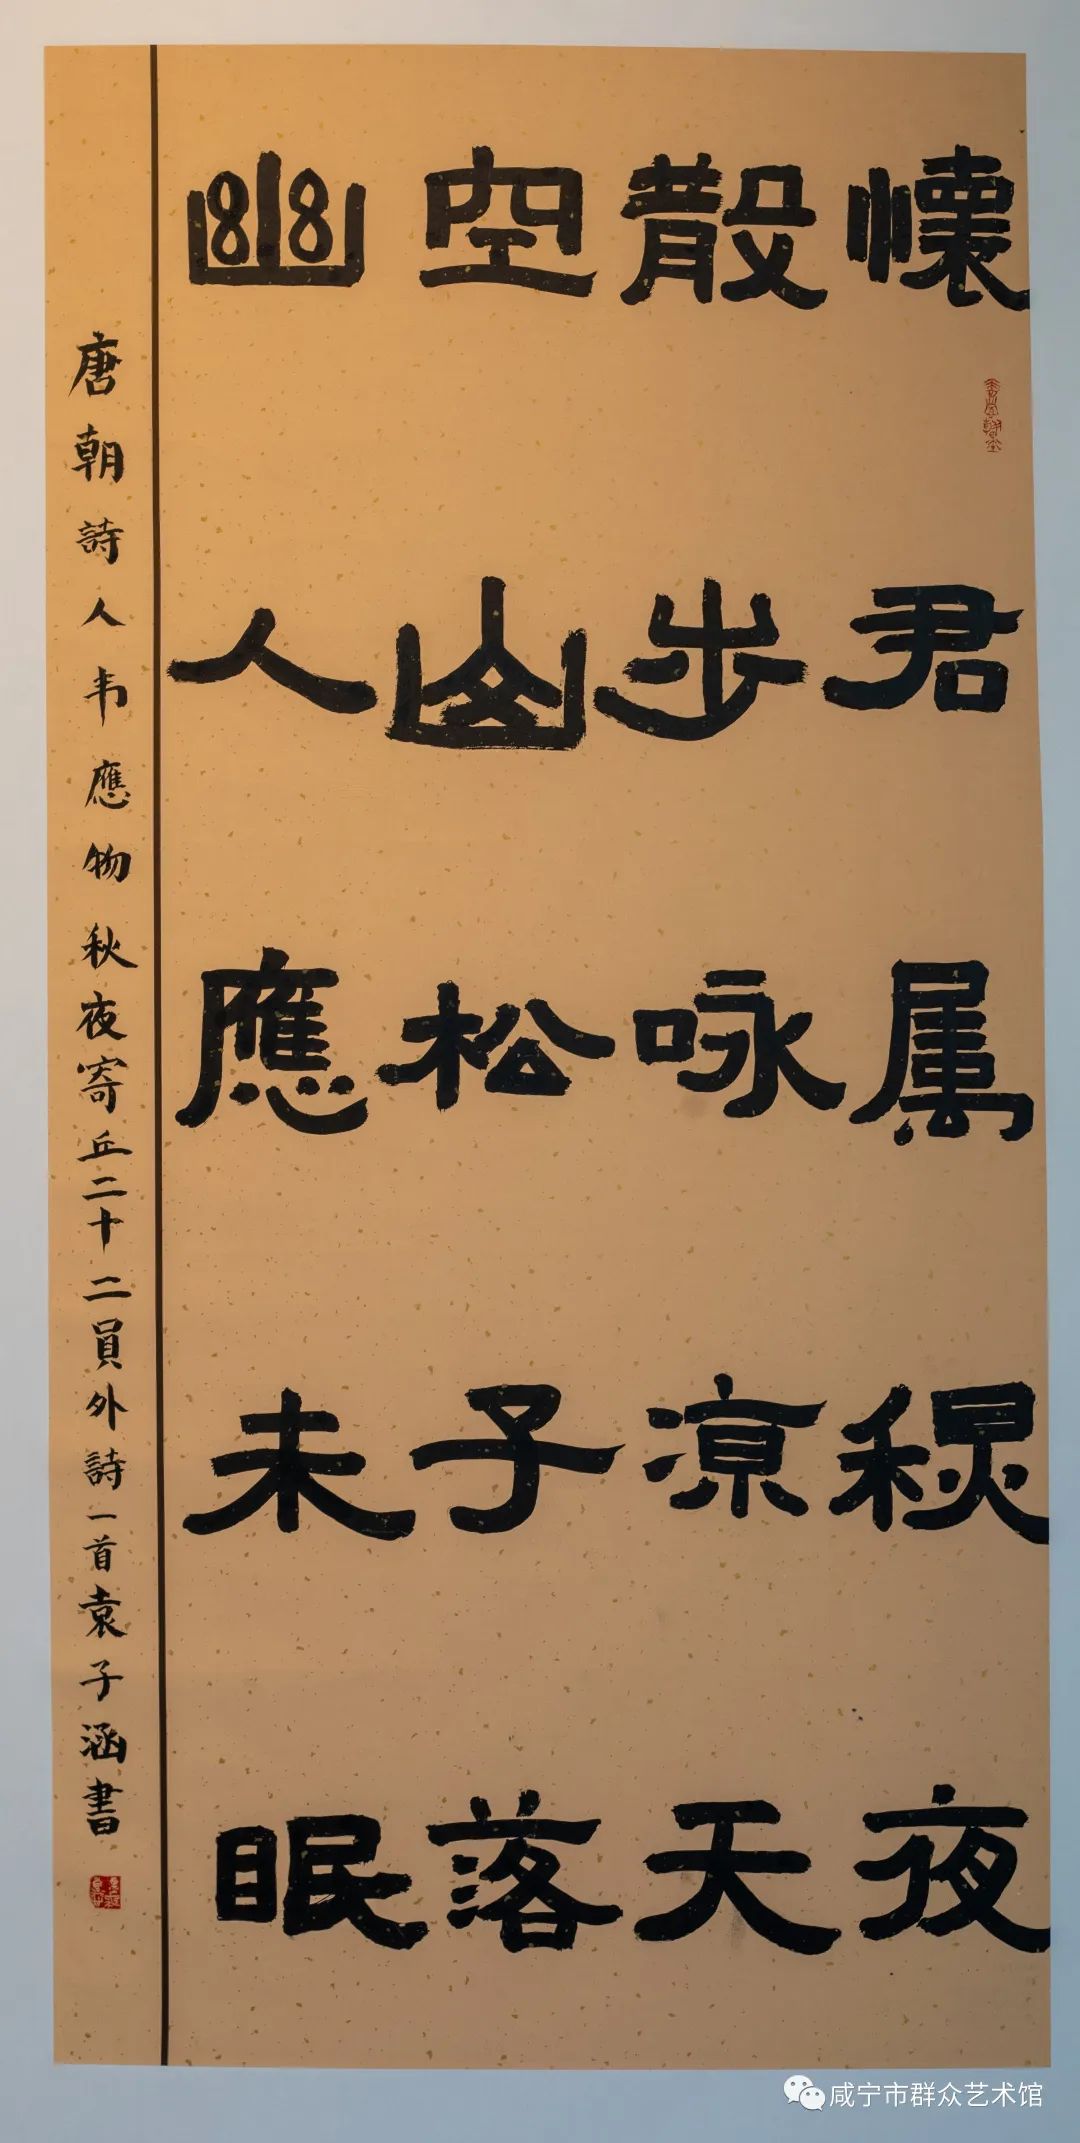 懷君属秋夜
散步咏凉天
空山松子落
幽人應未眠
唐朝詩人韦應物秋夜寄丘二十二員外詩一首袁子涵書
咸宁市群众艺术馆